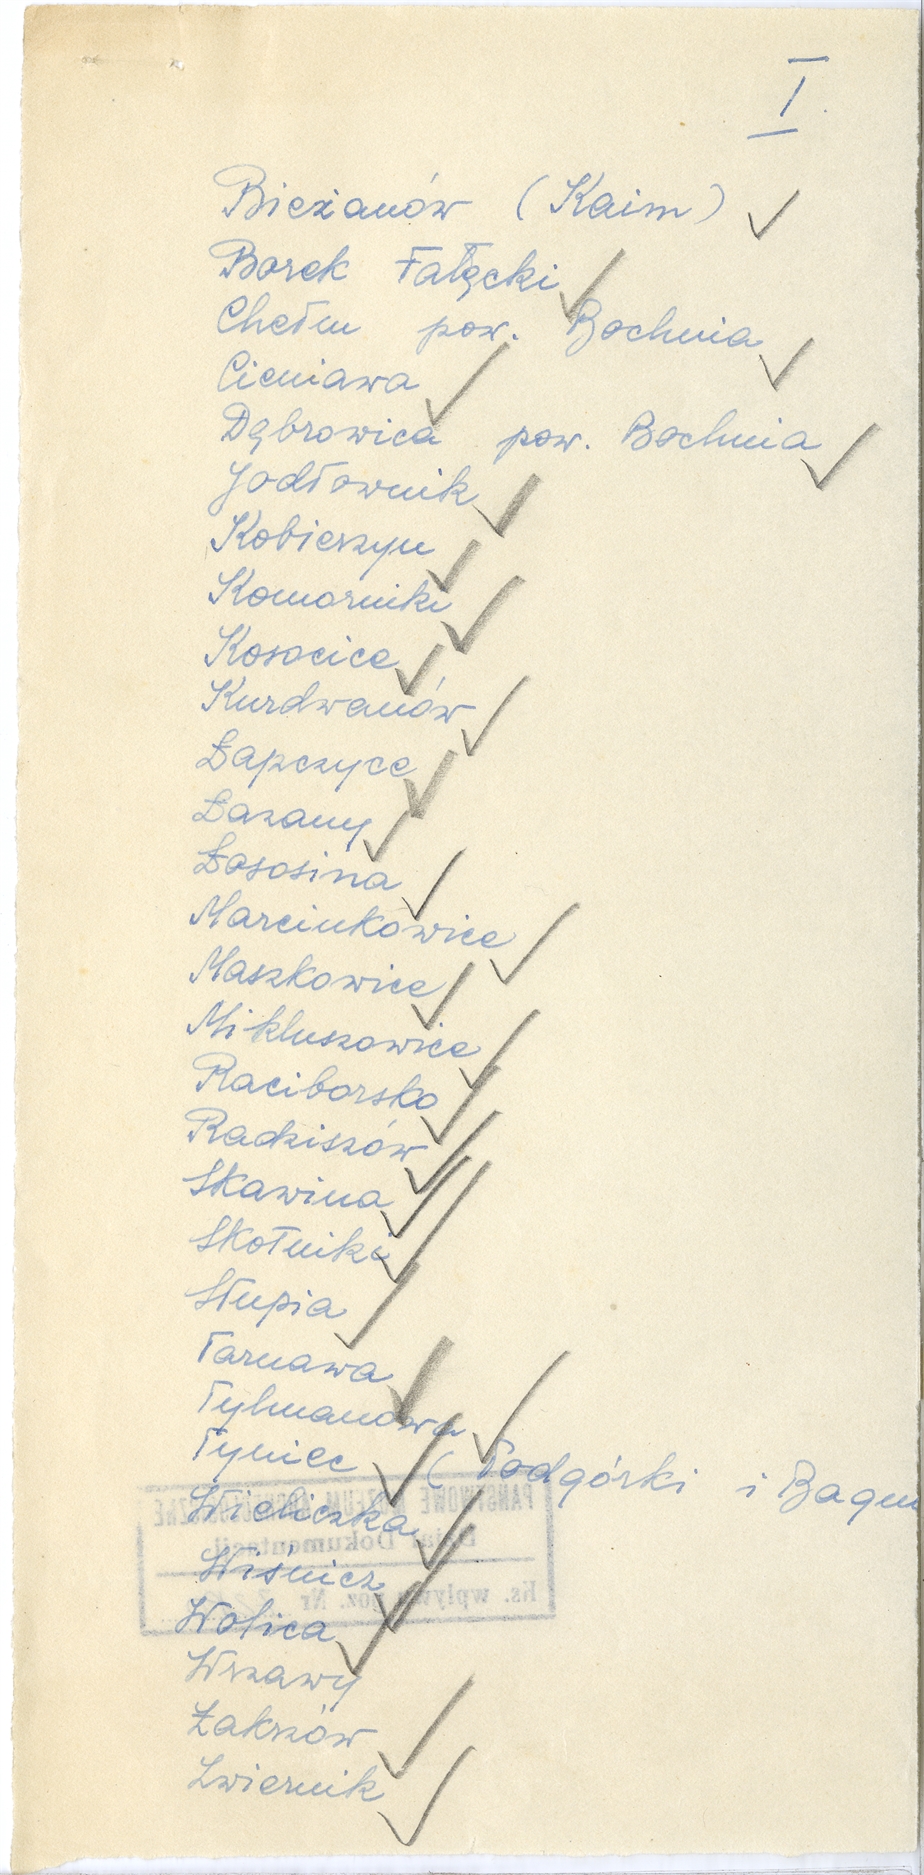 I
Bieżanów (Kaim)
Borek Fałęcki
Chełm pow. Bochnia
Cieniawa
Dąbrowica pow. Bochnia
Jodłownik
Kobierzyn
Komorniki
Kosocice
Kurdwanów
Łapczyce
Łazany
Łososina
Marcinkowice
Maszkowice
Mikluszowice
Raciborsko
Radziszów
Skawina
Skotniki
Słupia
Tarnawa
Tylmanowa
Tyniec (Podgórki i Bagn
Wieliczka
Wiśnicz
Wolica
Wrzawy
Zakrzów
Zwiernik
PAŃSTWOWE MUZEUM ARCHEOLOGICZNE
Dział Dokumentacji
Ks. wpływu poz. Nr